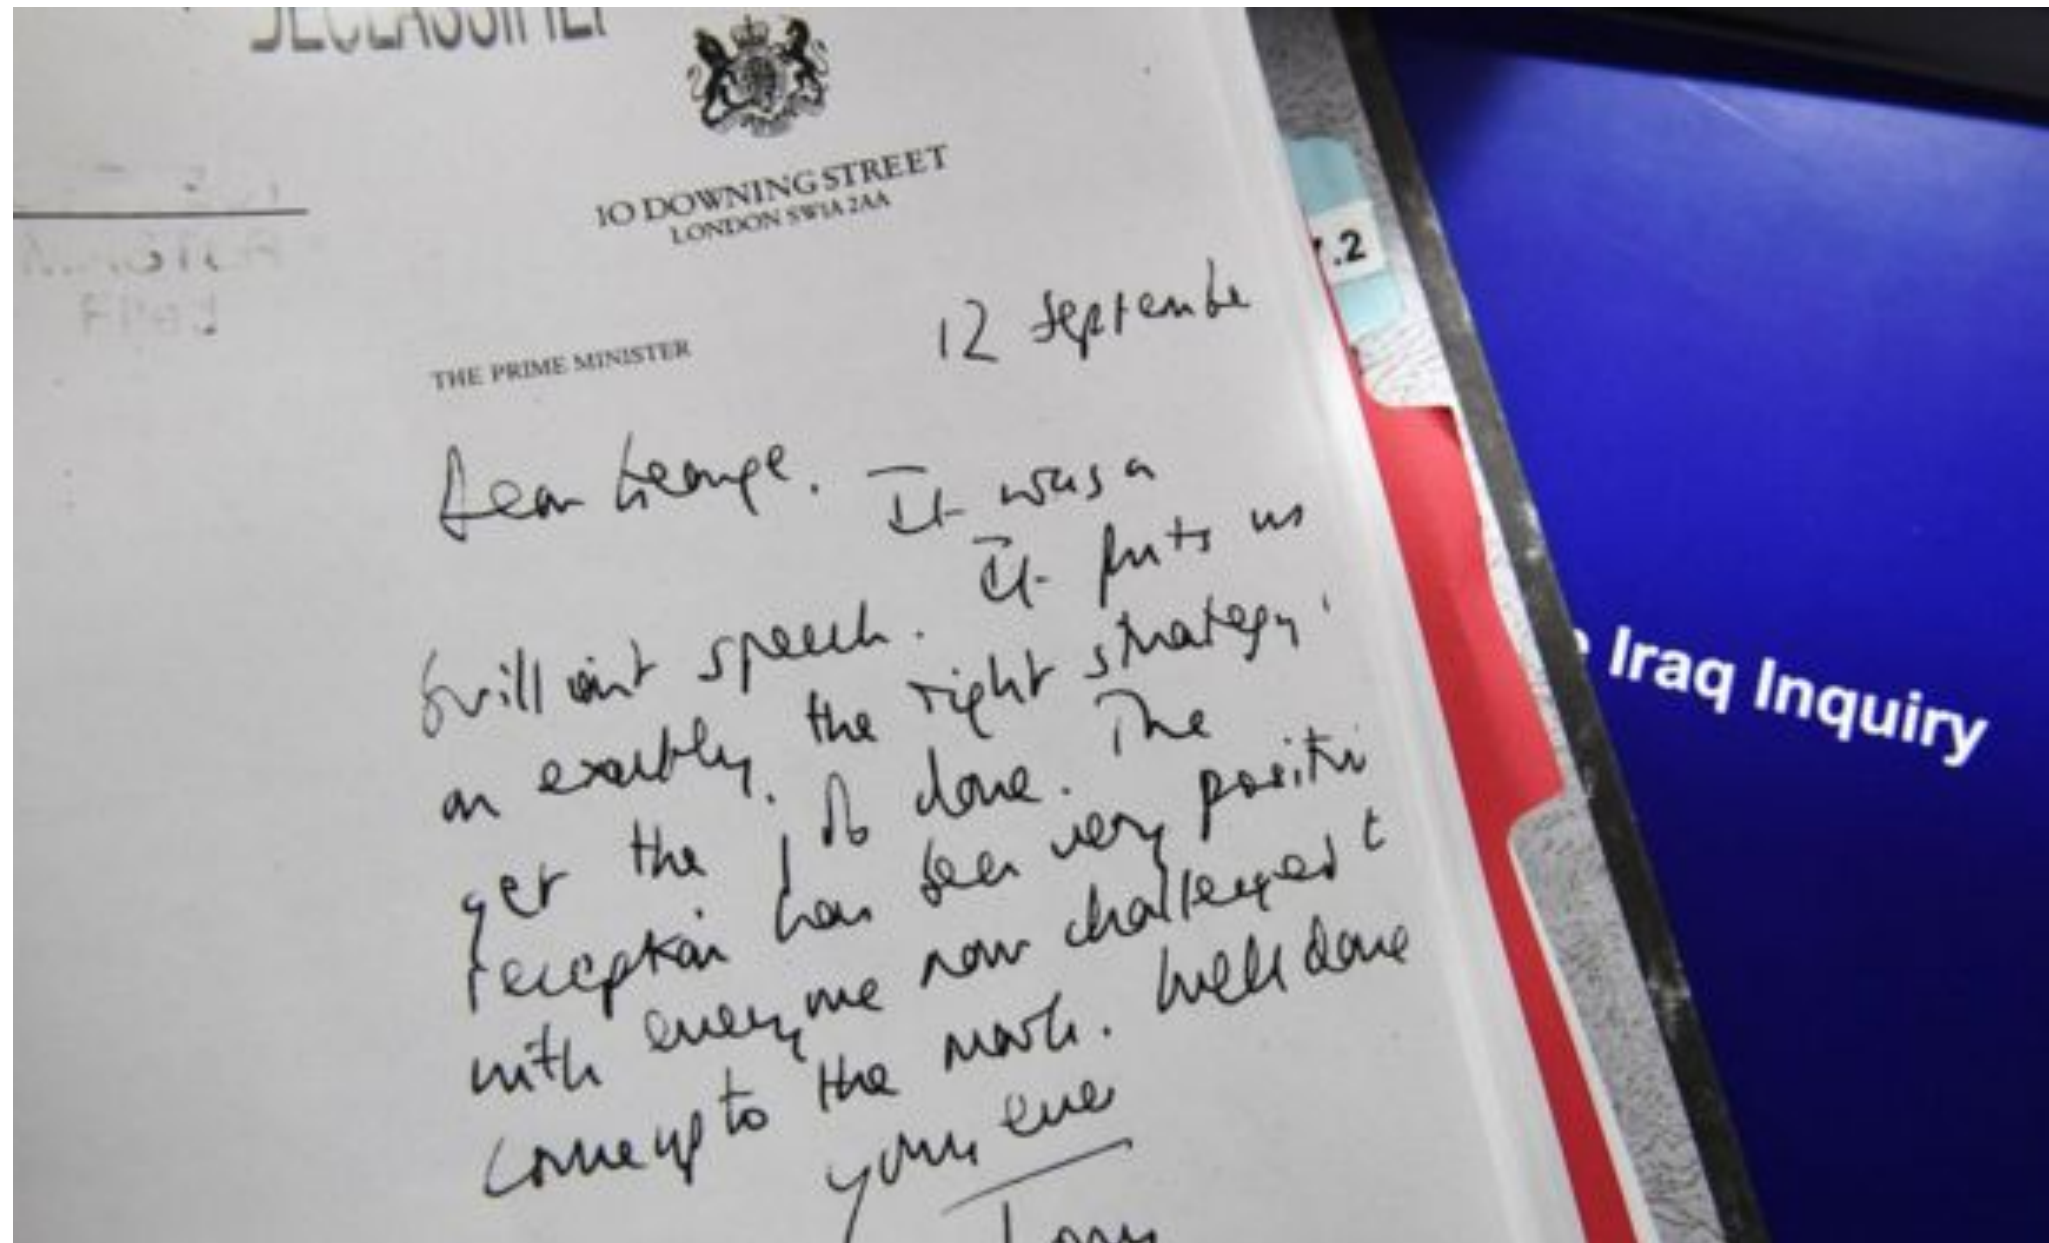 DECLASSIFIED
10 DOWNING STREET
LONDON SW1A 2AA
.2
12 September
THE PRIME MINISTER
Dear George. It was a
brilliant speech. It puts us
on exactly the right strategy
get the job done. The
reception has been very positive
with everyone now challenged t
come up to the mark. Well done
Yours ever
Tony
Iraq Inquiry